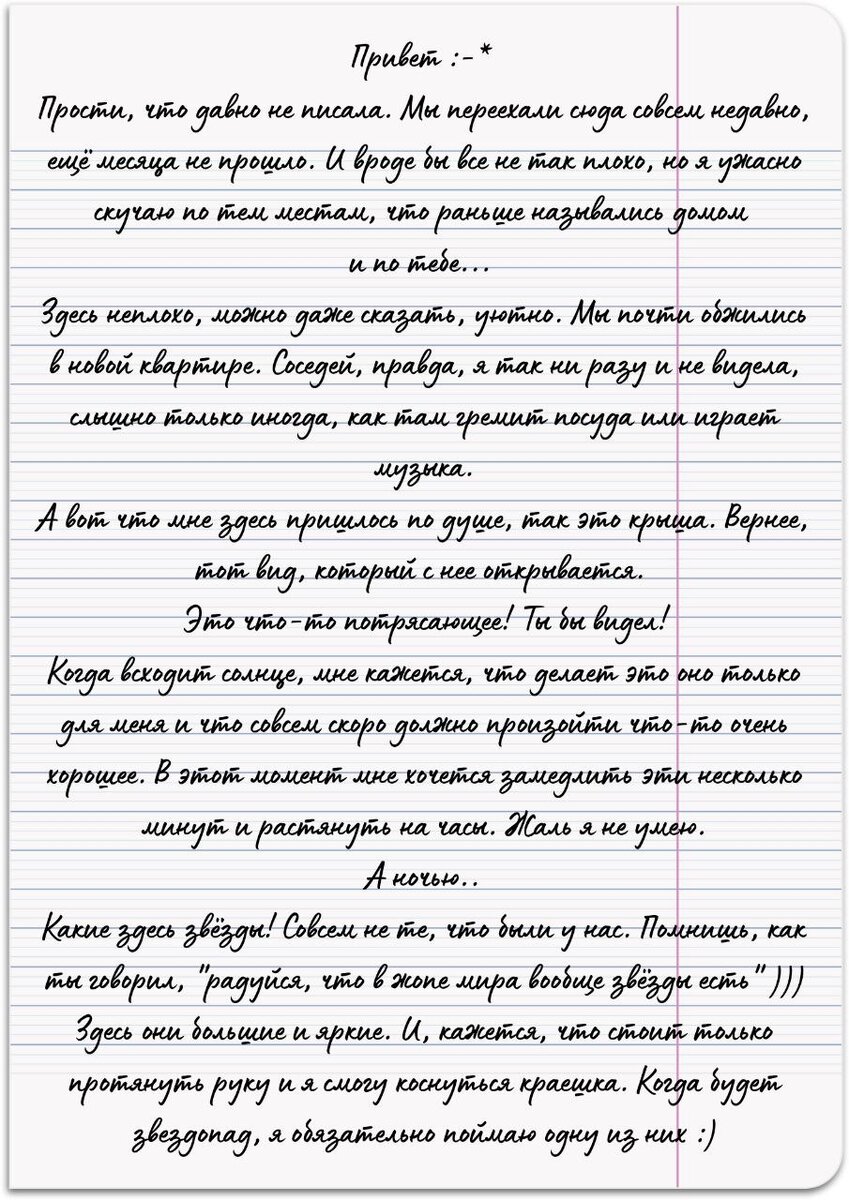 Привет :-*
Прости, что давно не писала. Мы переехали сюда совсем недавно,
ещё месяца не прошло. И вроде бы все не так плохо, но я ужасно
скучаю по тем местам, что раньше назывались домом
и по тебе...
Здесь неплохо, можно даже сказать, уютно. Мы почти обжились
в новой квартире. Соседей, правда, я так ни разу и не видела,
слышно только иногда, как там гремит посуда или играет
музыка.
А вот что мне здесь пришлось по душе, так это крыша. Вернее,
тот вид, который с нее открывается.
Это что-то потрясающее! Ты бы видел!
Когда всходит солнце, мне кажется, что делает это оно только
для меня и что совсем скоро должно произойти что-то очень
хорошее. В этот момент мне хочется замедлить эти несколько
минут и растянуть на часы. Жаль я не умею.
А ночью..
Какие здесь звёзды! Совсем не те, что были у нас. Помнишь, как
ты говорил, "радуйся, что в жопе мира вообще звёзды есть" )))
Здесь они большие и яркие. И, кажется, что стоит только
протянуть руку и я смогу коснуться краешка. Когда будет
звездопад, я обязательно поймаю одну из них :)